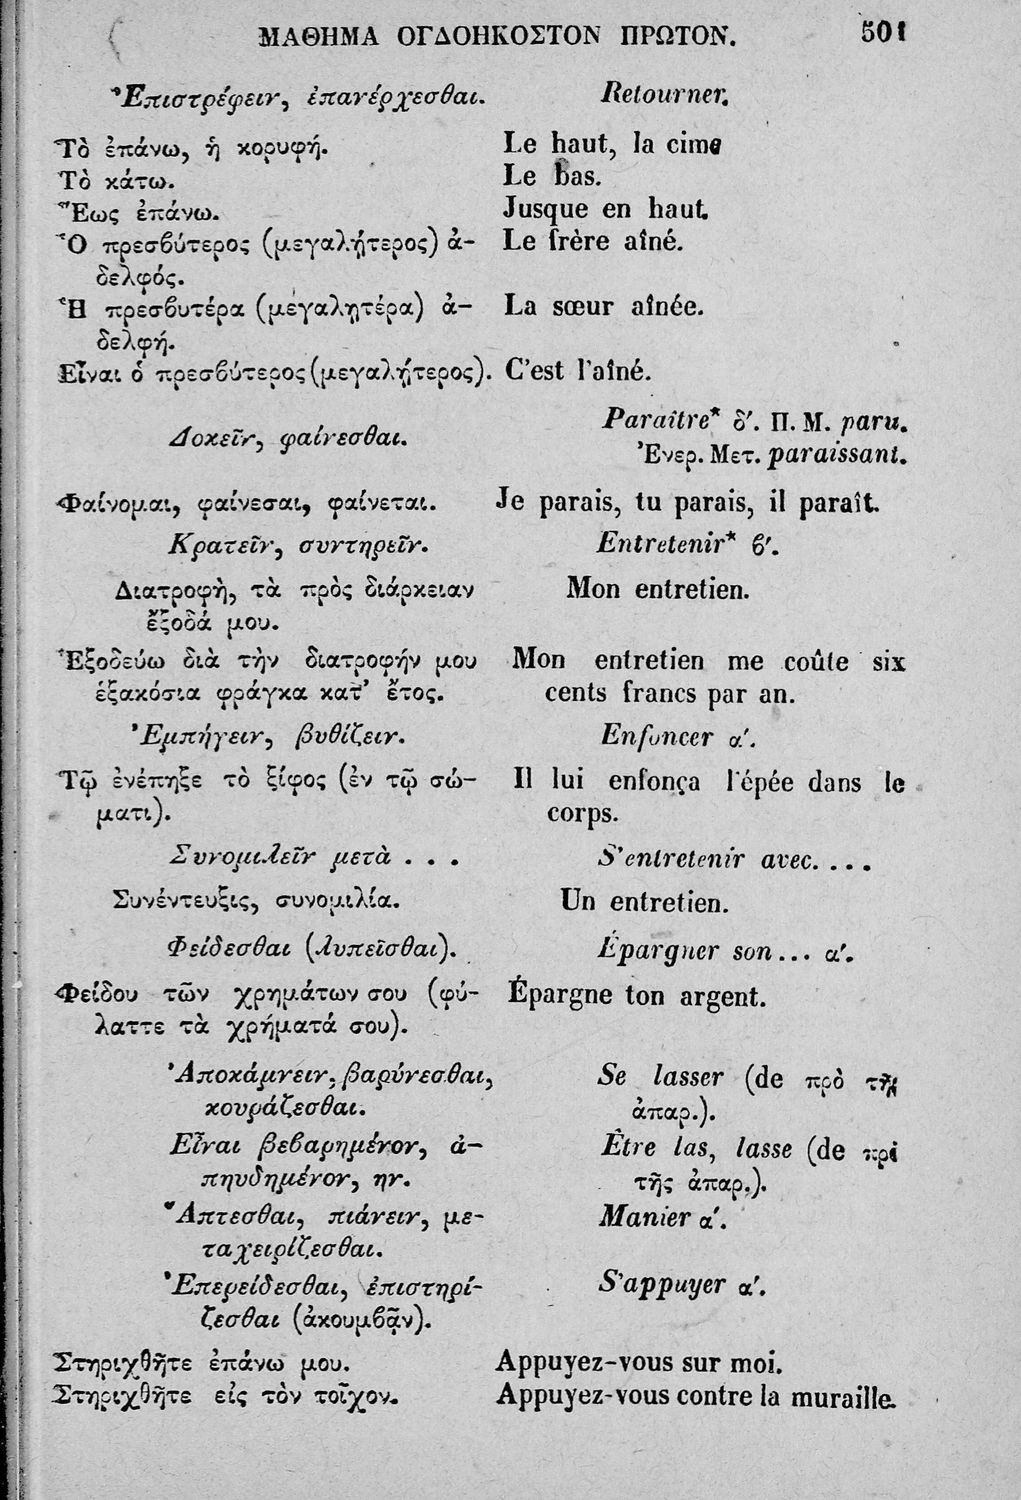 ΜΑΘΗΜΑ ΟΓΔΟΗΚΟΣΤΟΝ ΠΡΩΤΟΝ. 501
Ἐπιστρέφειν, ἐπανέρχεσθαι. Retourner.
Τὸ ἐπάνω, ἡ κορυφή. Le haut, la cime
Τὸ κάτω. Le bas.
Ἕως ἐπάνω. Jusque en haut.
Ὁ πρεσβύτερος (μεγαλήτερος) ἀ- Le frère aîné.
δελφός.
Ἡ πρεσβυτέρα (μεγαλητέρα) ἀ- La sœur aînée.
δελφή.
Εἶναι ὁ πρεσβύτερος (μεγαλήτερος). C'est l'aîné.
Δοκεῖν, φαίνεσθαι. Paraître* δ′. Π. Μ. paru.
Ἐνερ. Μετ. paraissant.
Φαίνομαι, φαίνεσαι, φαίνεται. Je parais, tu parais, il paraît.
Κρατεῖν, συντηρεῖν. Entretenir* β′.
Διατροφὴ, τὰ πρὸς διάρκειαν Mon entretien.
ἔξοδά μου.
Ἐξοδεύω διὰ τὴν διατροφήν μου Mon entretien me coûte six
ἑξακόσια φράγκα κατ' ἔτος. cents francs par an.
Ἐμπήγειν, βυθίζειν. Enfoncer α′.
Τῷ ἐνέπηξε τὸ ξίφος (ἐν τῷ σώ- Il lui enfonça l'épée dans le
ματι). corps.
Συνομιλεῖν μετὰ . . . S'entretenir avec. . . .
Συνέντευξις, συνομιλία. Un entretien.
Φείδεσθαι (λυπεῖσθαι). Épargner son... α′.
Φείδου τῶν χρημάτων σου (φύ- Épargne ton argent.
λαττε τὰ χρήματά σου).
Ἀποκάμνειν, βαρύνεσθαι, Se lasser (de πρὸ τῆς
κουράζεσθαι. ἀπαρ.).
Εἶναι βεβαρημένον, ἀ- Être las, lasse (de πρὸ
πηυδημένον, ην. τῆς ἀπαρ.).
Ἅπτεσθαι, πιάνειν, με- Manier α′.
ταχειρίζεσθαι.
Ἐπερείδεσθαι, ἐπιστηρί- S'appuyer α′.
ζεσθαι (ἀκουμβᾷν).
Στηριχθῆτε ἐπάνω μου. Appuyez-vous sur moi.
Στηριχθῆτε εἰς τὸν τοῖχον. Appuyez-vous contre la muraille.